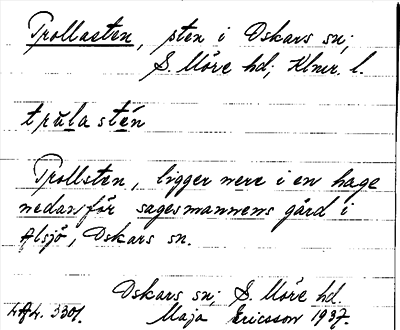 Trollasten, sten i Oskars sn;
S. Möre hd; Klmr. l.
trulastén
Trollsten, ligger nere i en hage
nedanför sagesmannens gård i
Alsjö, Oskars sn.
Oskars sn; S. Möre hd.
Maja Ericsson 1937.